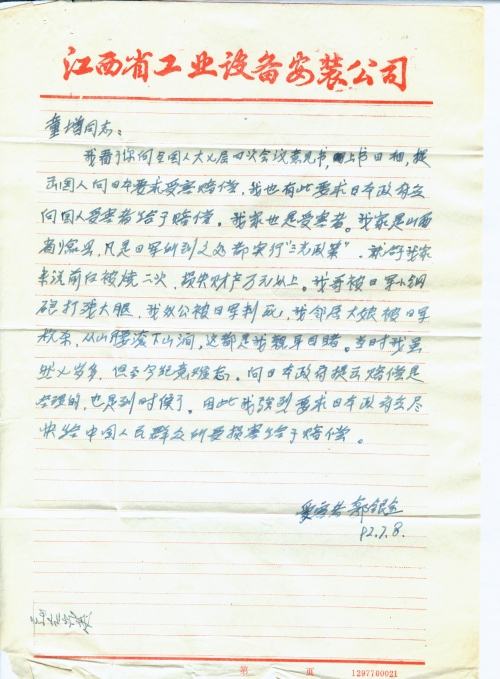 江西省工业设备安装公司
童增同志:
我看了你向全国人大七届四次会议意见书,上书日相,提
出国人向日本要求受害赔偿,我也有此要求日本政府应
向国人受害者给予赔偿。我家也是受害者。我家是山西
省县,凡是日军所到之处都实行“三光政策”。就我家
来说前后被烧二次,损失财产万元以上。我哥被日军小钢
砲打残大腿,我叔公被日军刺死,我邻居大娘被日军
枪杀,从山腰滚下山涧,这都是我亲身目睹。当时我虽
然七岁多,但至今记忆难忘。向日本政府提出赔偿是
合理的,也是到时候了。因此我强烈要求日本政府应尽
快给中国人民群众所受损害给予赔偿。
受害者 郭银金
92.7.8.
第 页 1297700021